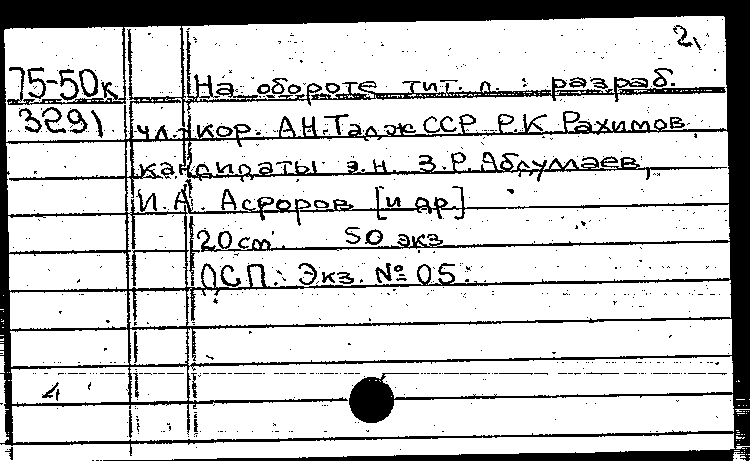 2,
75-50к На обороте тит. л. : разраб.
3291 чл.-кор. АН.Тадж ССР Р.К Рахимов,
кандидаты э.н. З.Р.Абдуллаев,
И.А. Асроров [и др.]
20 cm. 50 экз
ОСП.: Экз. № 05.
4